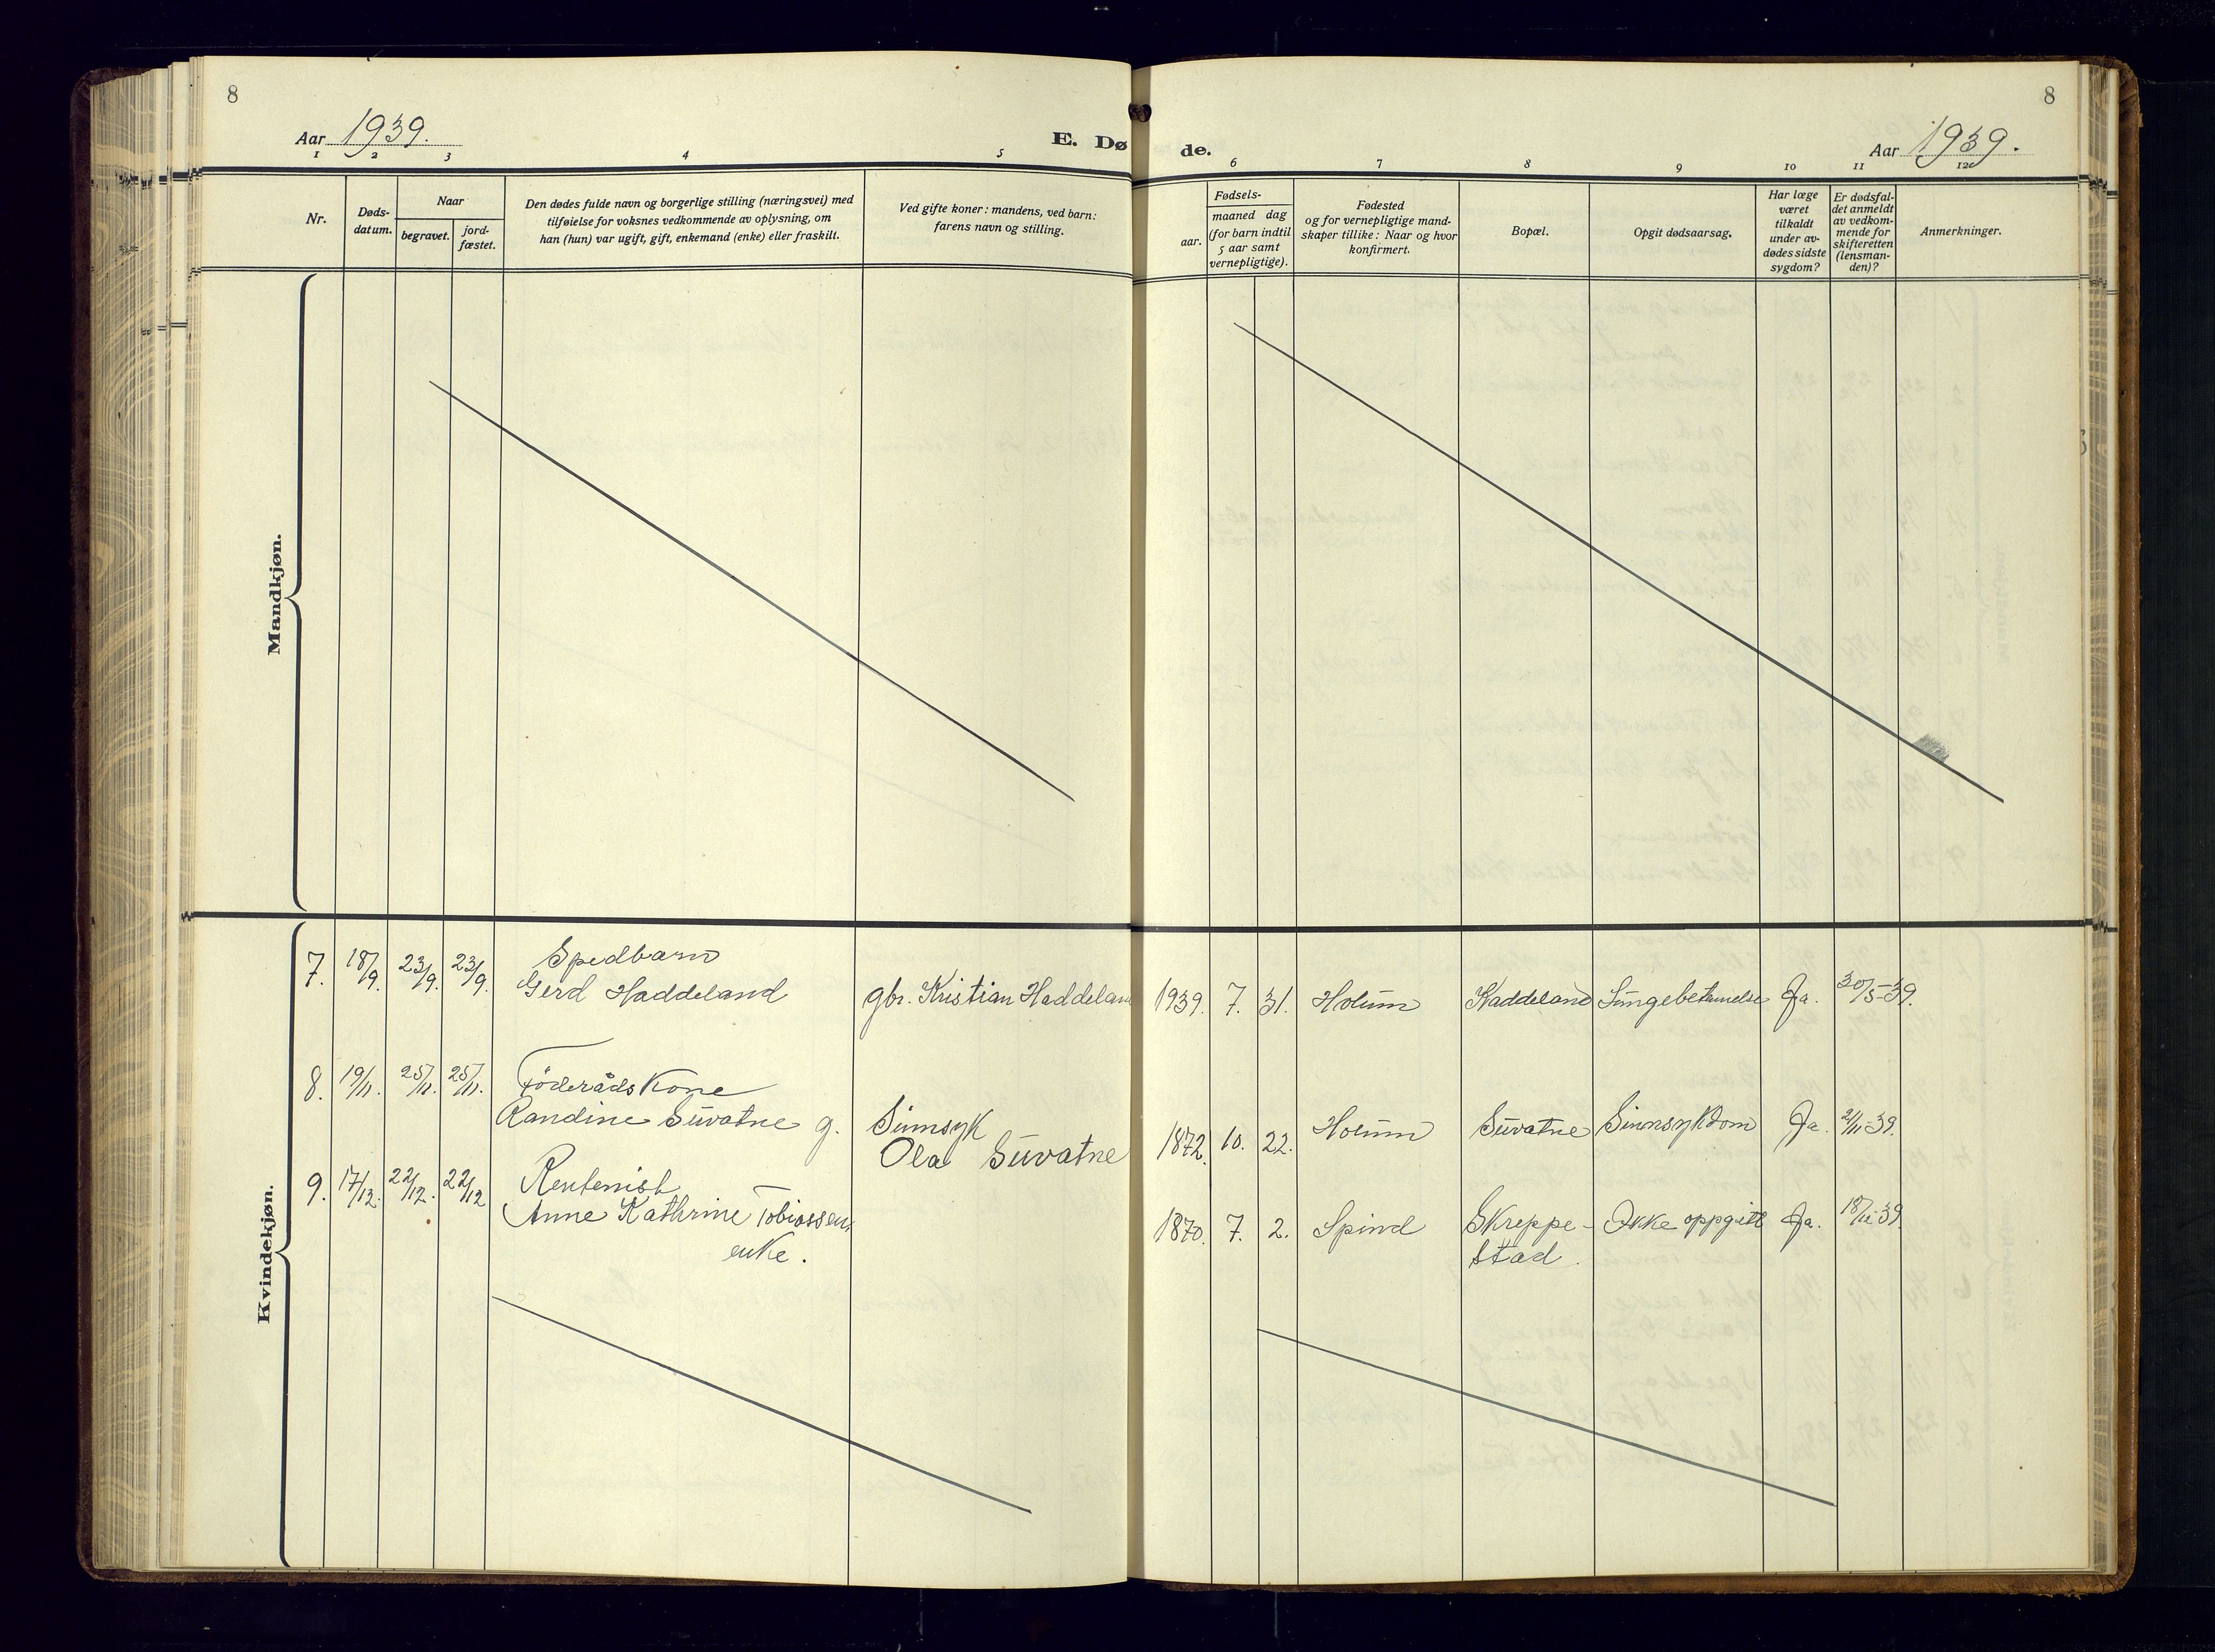 8
8
Aar 1939.
E. Dø
de.
Aar 1939.
1 2 3 4 5 6 7 8 9 10 11 12
Nr.
Døds-
datum.
Naar
begravet.
jord-
fæstet.
Den dødes fulde navn og borgerlige stilling (næringsvei) med
tilføielse for voksnes vedkommende av oplysning, om
han (hun) var ugift, gift, enkemand (enke) eller fraskilt.
Ved gifte koner: mandens, ved barn:
farens navn og stilling.
Fødsels-
aar.
maaned dag
(for barn indtil
5 aar samt
vernepligtige).
Fødested
og for vernepligtige mand-
skaper tillike: Naar og hvor
konfirmert.
Bopæl.
Opgit dødsaarsag.
Har læge
været
tilkaldt
under av-
dødes sidste
sygdom?
Er dødsfal-
det anmeldt
av vedkom-
mende for
skifteretten
(lensman-
den)?
Anmerkninger.
Mandkjøn.
Kvindekjøn.
Spedbarn
7. 18/9. 23/9. 23/9. Gerd Haddeland gbr. Kristian Haddeland 1939. 7. 31. Holum Haddeland Lungebetennelse Ja.
8. 19/11. 25/11. 25/11. Föderåds Kone
Randine Suvatne g. Sinnsyk
Ola Suvatne 1872. 10. 22. Holum Suvatne Sinnsykdom Ja. 21/11-39.
9. 17/12. 22/12. 22/12 Rentenist
Anne Kathrine Tobiassen, 1870. 7. 2. Spind Skreppe- Ikke oppgitt Ja.
enke. stad.